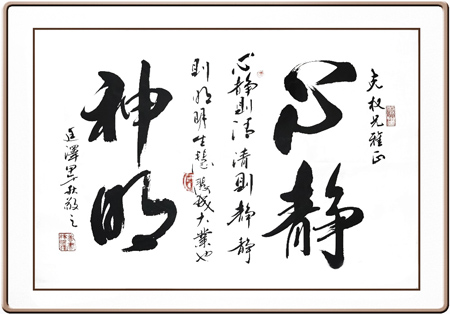 克权兄雅正
心静
心静则清清则静静
则明明生慧慧成大業也
神明
廷澤甲午秋敬之